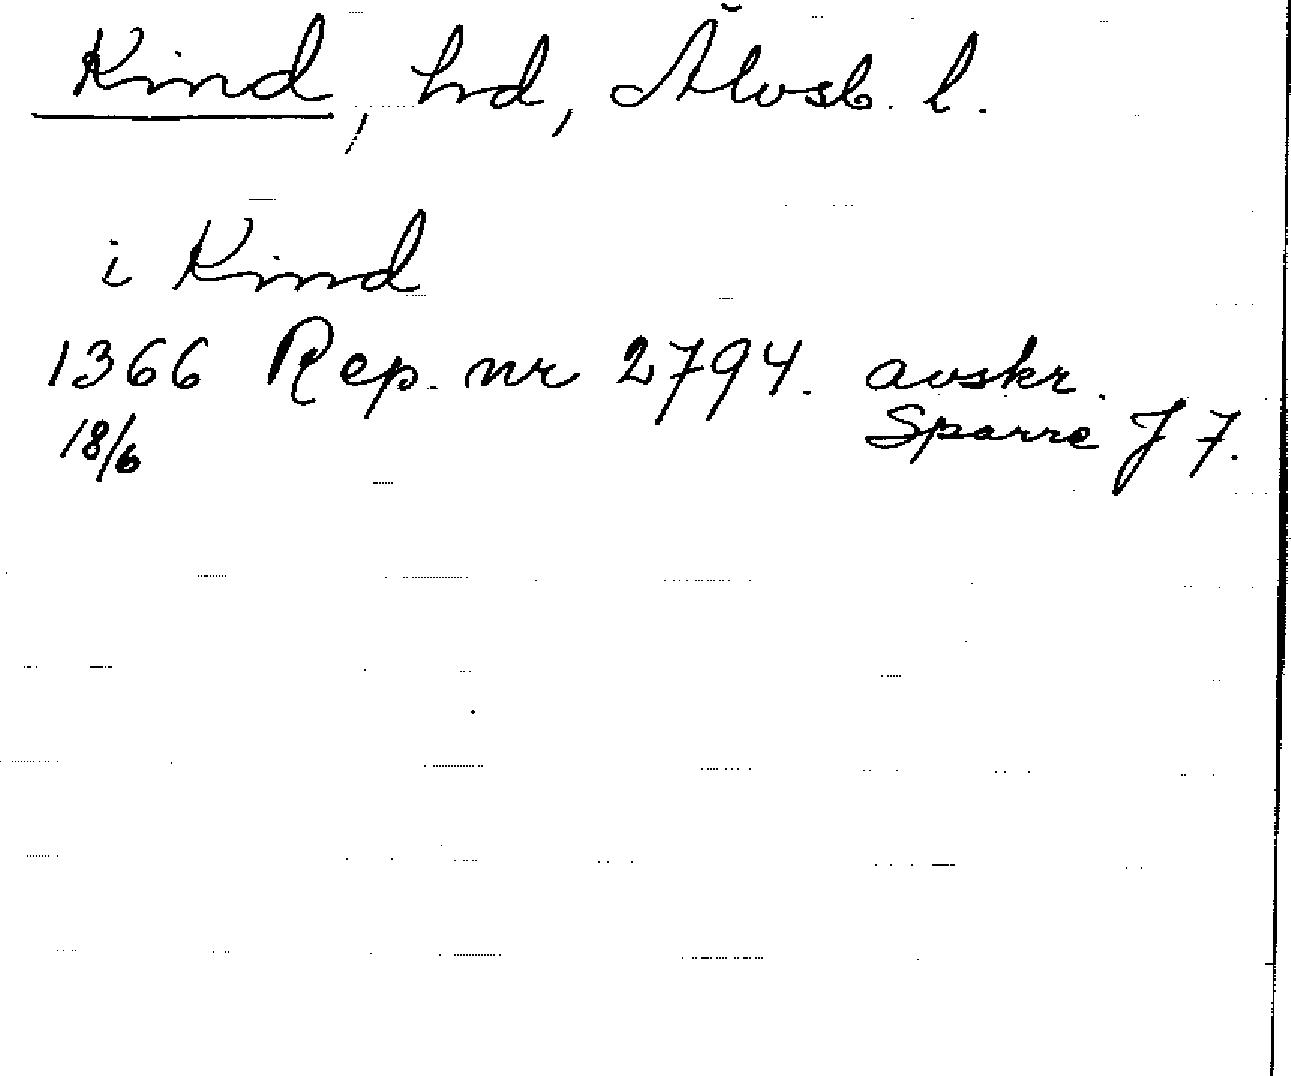 Kind, hd, Älvsb. l.
i Kind
1366 Rep. nr 2794. avskr.
18/6 Sparre J 7.